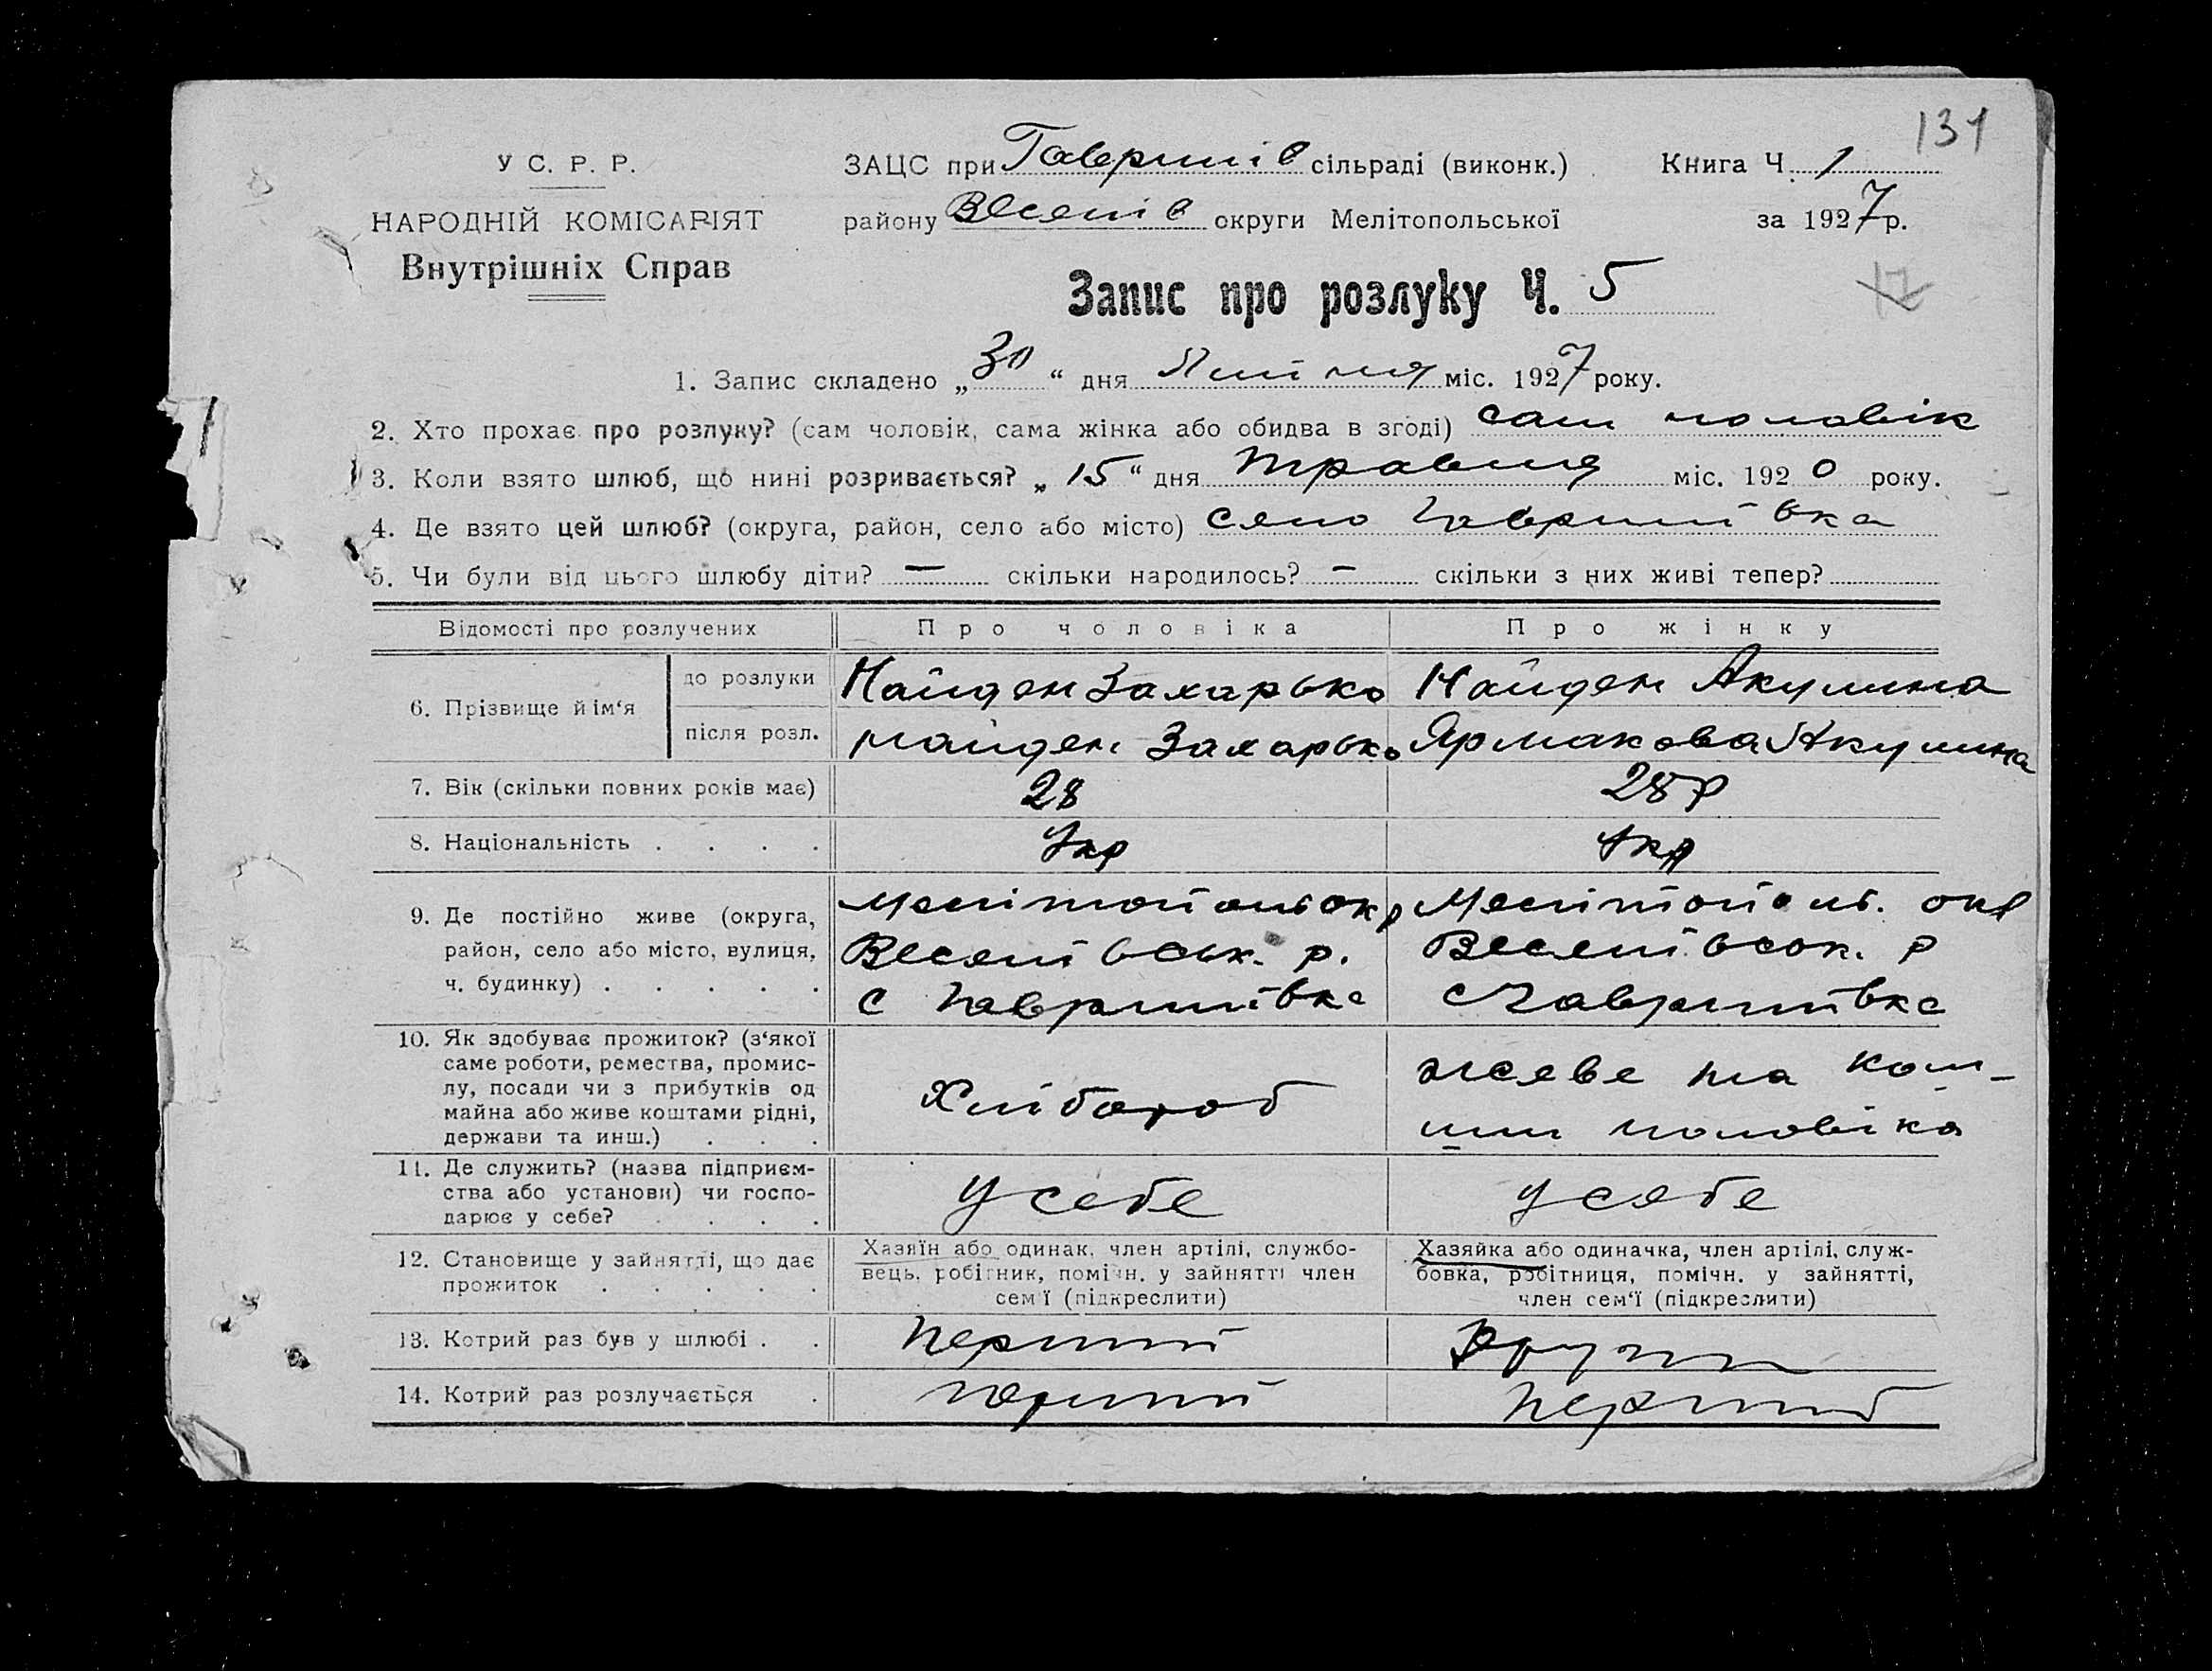 131
У С. Р. Р.
НАРОДНІЙ КОМІСАРІЯТ
Внутрішніх Справ
ЗАЦС при Гаврилів сільраді (виконк.) Книга Ч. 1
району Веселів округи Мелітопольської за 1927 р.
Запис про розлуку Ч. 5
17
1. Запис складено „30“ дня Липня міс. 1927 року.
2. Хто прохає про розлуку? (сам чоловік, сама жінка або обидва в згоді) сам чоловік
3. Коли взято шлюб, що нині розривається? „15“ дня травня міс. 1920 року.
4. Де взято цей шлюб? (округа, район, село або місто) село Гаврилівка
5. Чи були від цього шлюбу діти? — скільки народилось? — скільки з них живі тепер?
Відомості про розлучених Про чоловіка Про жінку
6. Прізвище й ім‘я до розлуки Найден Захарько Найден Акулина
після розл. Найден Захарько Ярмакова Акулина
7. Вік (скільки повних років має) 28 28 р
8. Національність . . . . Укр Укр
9. Де постійно живе (округа, Мелітополь окр Мелітополь. окр
район, село або місто, вулиця, Веселівськ. р. Веселівськ. р
ч. будинку) . . . . . с Гаврилівка с Гаврилівка
10. Як здобуває прожиток? (з‘якої
саме роботи, ремества, промис-
лу, посади чи з прибутків од
майна або живе коштами рідні,
держави та инш.) . . .
Хлібороб
жеве на кош-
ти чоловіка
11. Де служить? (назва підприєм-
ства або установи) чи госпо-
дарює у себе? . . . .
У себе
У сябе
12. Становище у зайнятті, що дає
прожиток . . . . .
Хазяїн або одинак, член артілі, службо-
вець, робітник, помічн. у зайнятті член
сем‘ї (підкреслити)
Хазяйка або одиначка, член артілі, служ-
бовка, робітниця, помічн. у зайнятті,
член сем‘ї (підкреслити)
13. Котрий раз був у шлюбі . . перший други
14. Котрий раз розлучається . перший